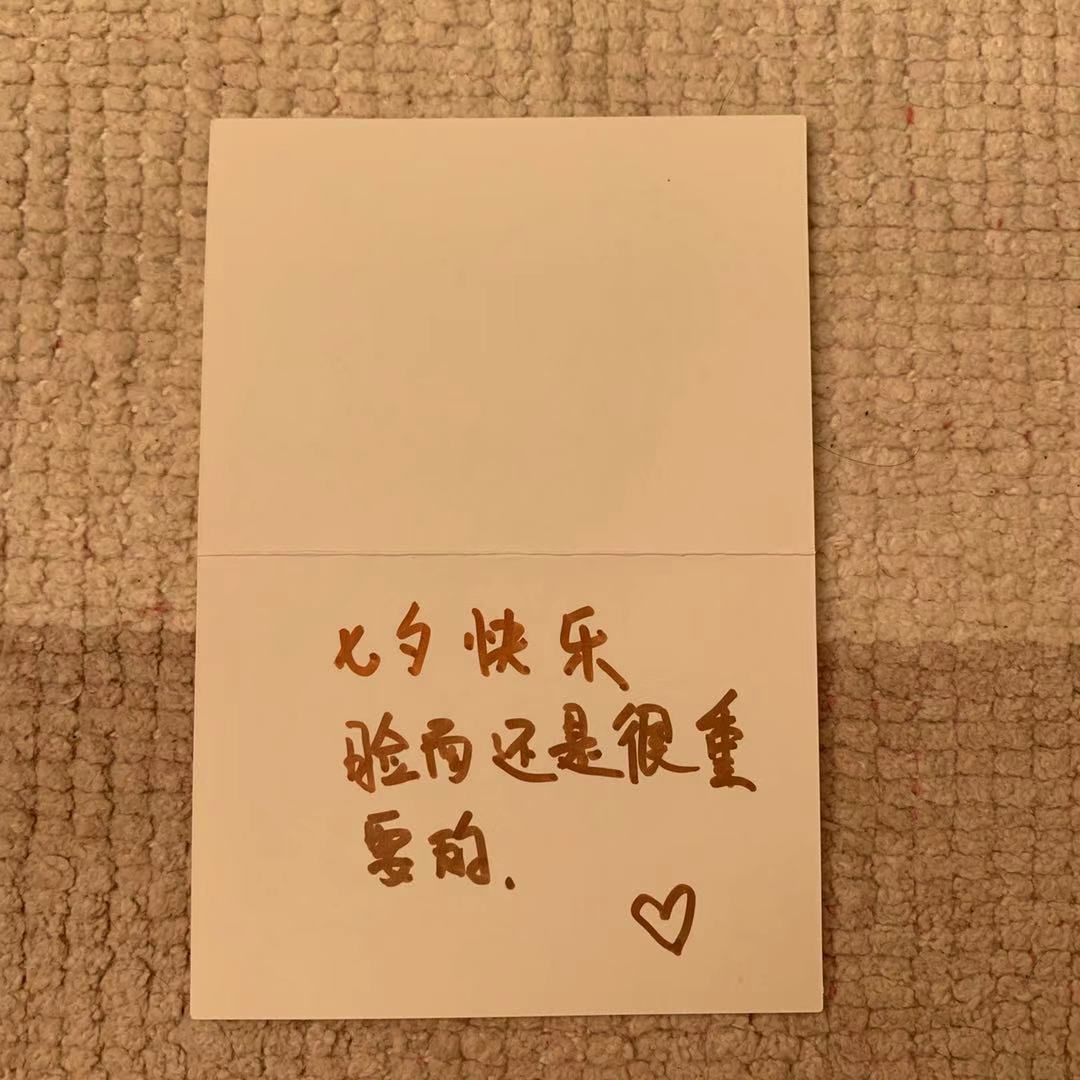 七夕快乐
脸面还是很重
要的.